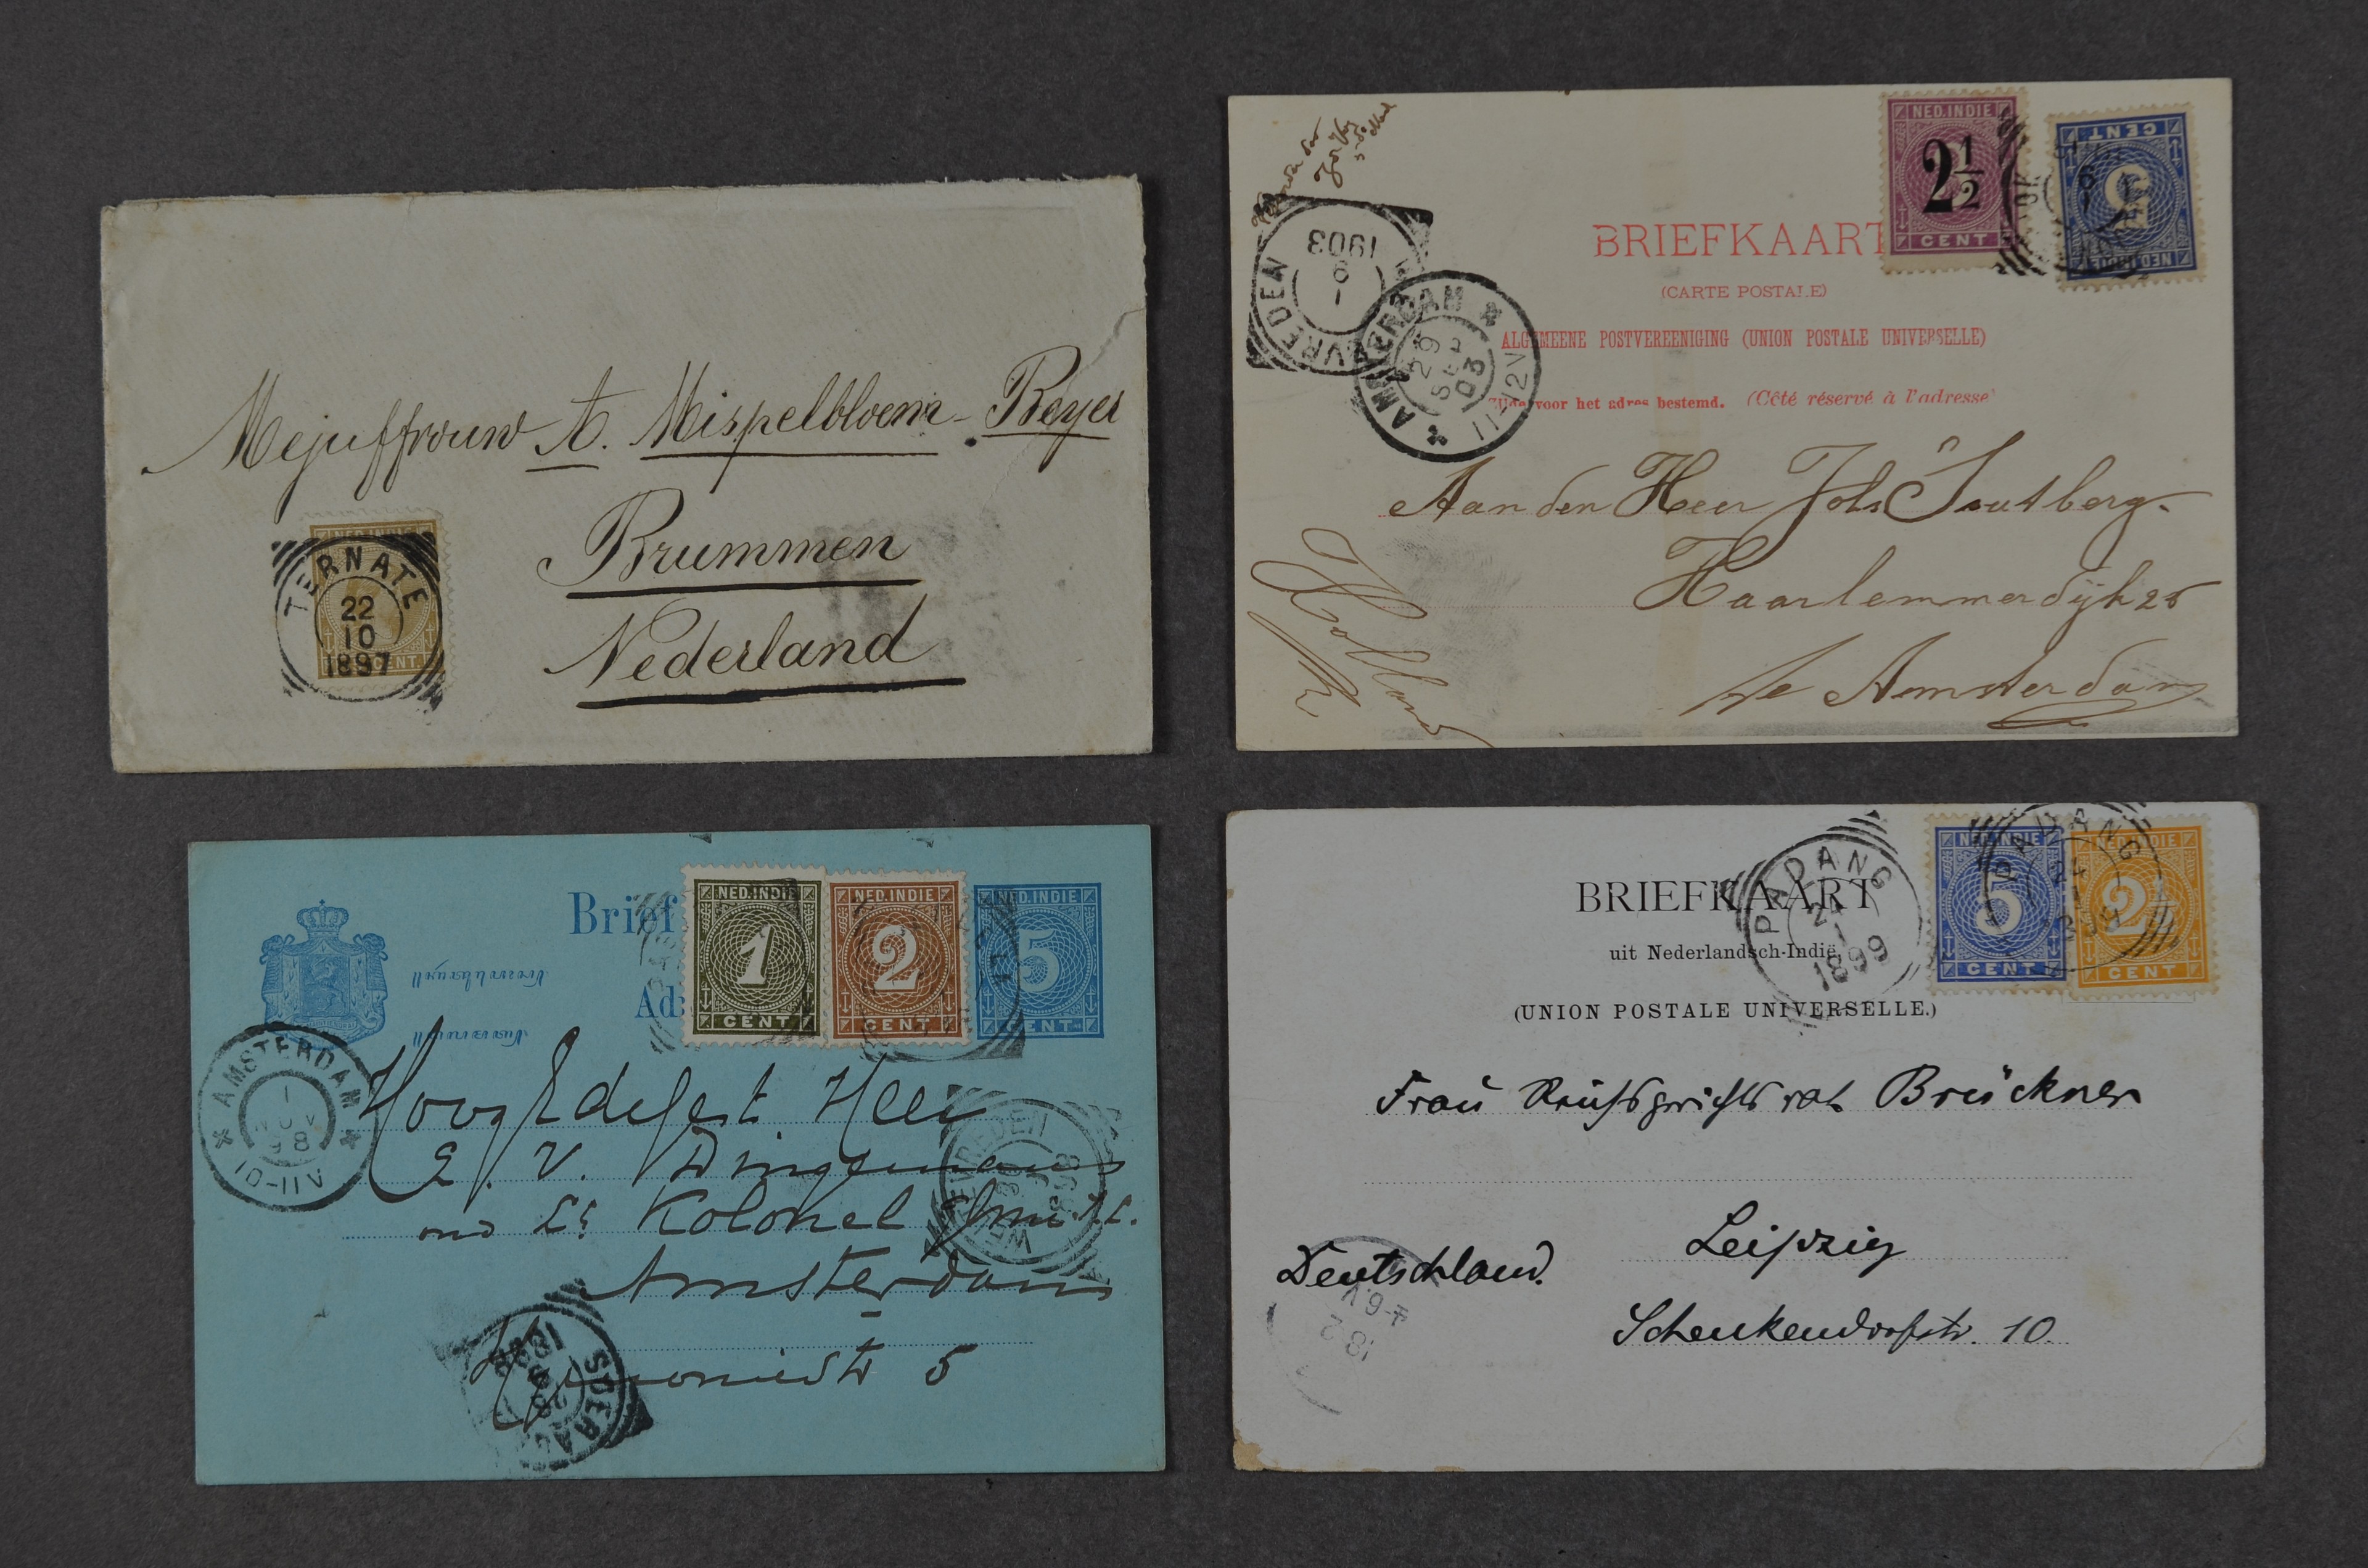 Mejuffrouw A. Mispelblom - Beyer
Brummen
Nederland
NED. INDIE
CENT.
TERNATE
22
10
1897
NED. INDIE
2½
CENT
NED. INDIE
5
CENT
BRIEFKAART
(CARTE POSTALE)
ALGEMEENE POSTVEREENIGING (UNION POSTALE UNIVERSELLE)
Zijde voor het adres bestemd. (Côté réservé à l'adresse
1903
6
1
AMSTERDAM
29
SEP
03
11-12V
Aan den Heer Joh's
Haarlemmerdijk 25
Te Amsterdam
Holland
Brief
Ad
NED. INDIE
1
CENT
NED. INDIE
2
CENT
NED. INDIE
5
CENT
AMSTERDAM
1
98
10-11V
WELTEVREDEN
Heer
E. V. Dingemans
Kolonel
Amsterdam
5
BRIEFKAART
uit Nederlandsch-Indië.
(UNION POSTALE UNIVERSELLE.)
PADANG
24
1
1899
NED. INDIE
5
CENT
NED. INDIE
2½
CENT
PADANG
24
1
Frau Reichsgerichtsrat Brückner
Leipzig
Deutschland.
Schenkendorfstr. 10.
18 2